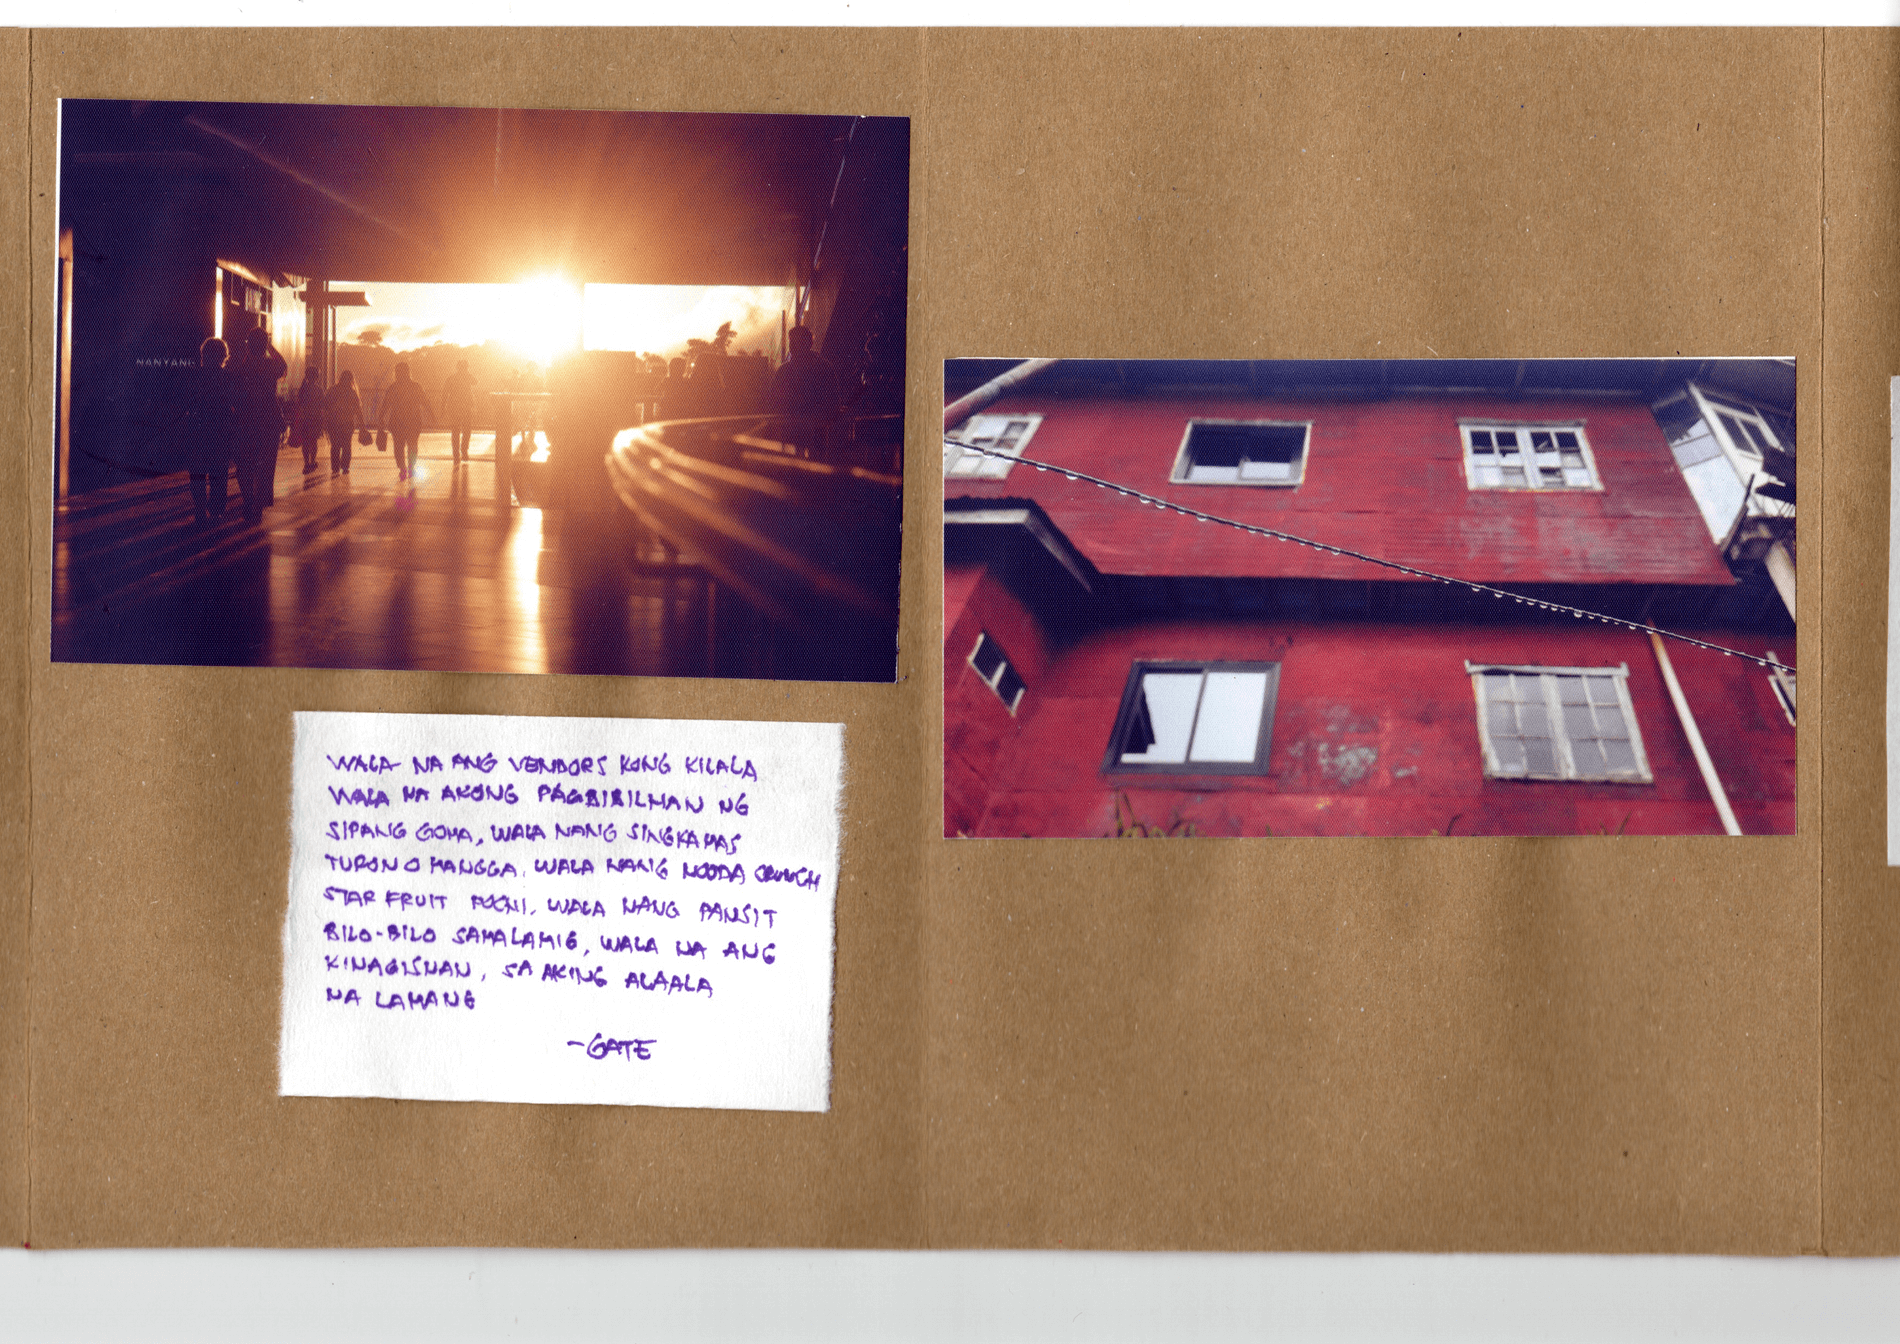 NANYANG
WALA NA ANG VENDORS KONG KILALA
WALA NA AKONG PAGBIBILHAN NG
SIPANG GOMA, WALA NANG SINGKAMAS
TURON O MANGGA. WALA NANG NOODA CRUNCH
STAR FRUIT POCHI. WALA NANG PANSIT
BILO-BILO SAMALAMIG, WALA NA ANG
KINAGISNAN, SA AKING ALAALA
NA LAMANG
-GATE